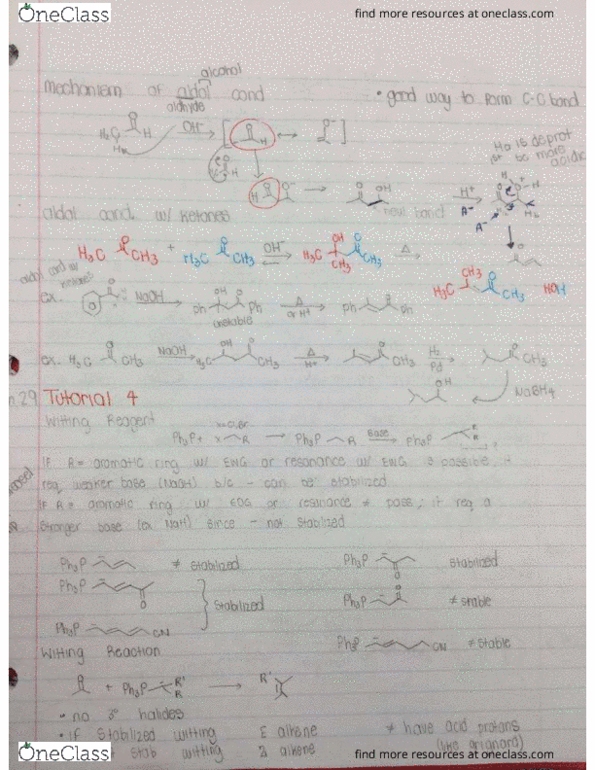 OneClass
find more resources at oneclass.com
alcohol
mechanism of aldol cond
aldehyde
• good way to form C-C bond
H₃C H OH⁻
Hα is deprot
be more
acidic
H⁺
A⁻
new bond
A⁻
aldol cond. w/ ketones
H₃C CH₃ + H₃C CH₃ OH⁻ H₃C OH CH₃ CH₃ Δ
H₃C CH₃ CH₃ HOH
aldol cond w/
ketones
ex. NaOH ph OH Ph Δ or H⁺ ph ph
unstable
ex. H₃C CH₃ NaOH H₃C OH CH₃ Δ CH₃ H₂ Pd CH₃
OH NaBH₄
29 Tutorial 4
Witting Reagent
Ph₃P + R → Ph₃P R Base Ph₃P
IF R = aromatic ring w/ EWG or resonance w/ EWG is possible, it
req weaker base (NaOH) b/c - can be stabilized
IF R = aromatic ring w/ EDG or resonance ≠ poss, it req a
stronger base (ex NaH) since - not stabilized
Ph₃P ≠ stabilized
Ph₃P O stabilized
Ph₃P O
stabilized
Ph₃P O ≠ stable
Ph₃P CN
Ph₃P CN ≠ stable
Witting Reaction
+ Ph₃P R' R → R'
• no 3° halides
• if stabilized witting E alkene
≠ have acid protons
stab witting Z alkene
(like grignard)
OneClass
find more resources at oneclass.com